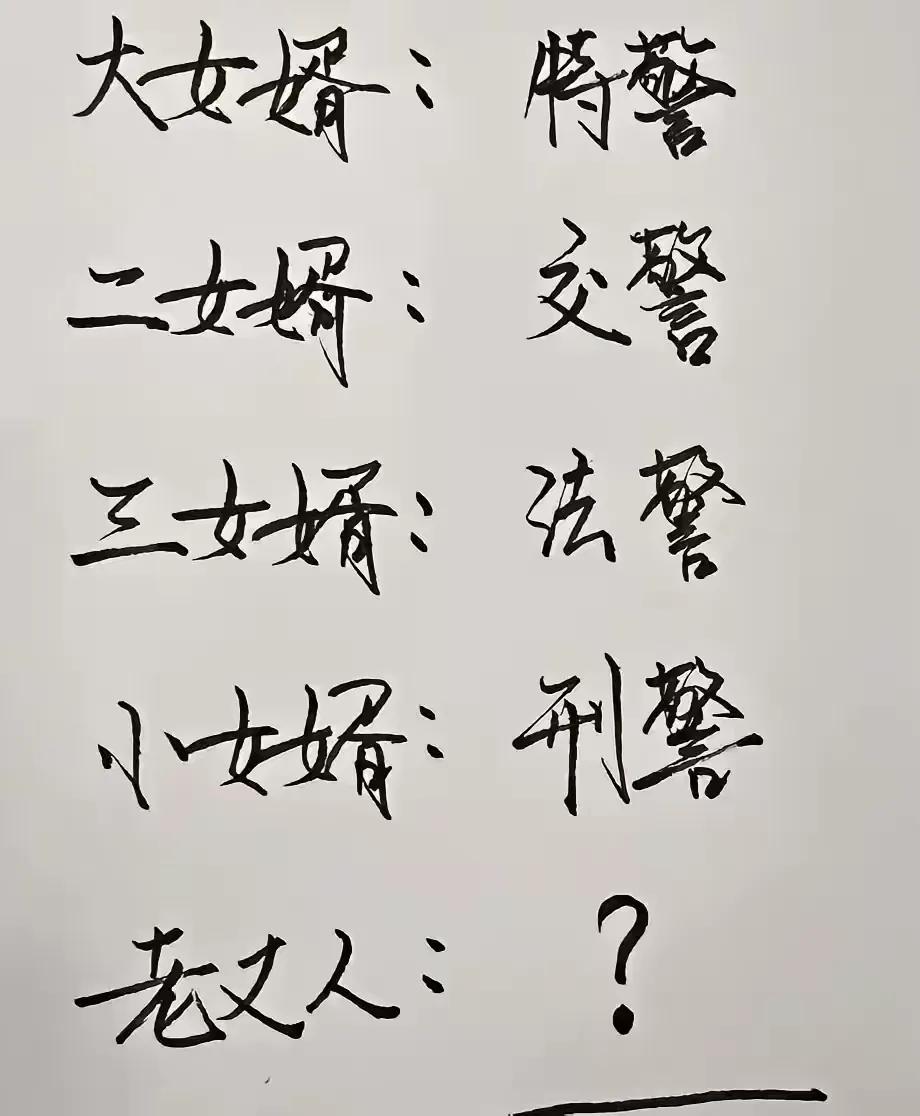 大女婿：特警
二女婿：交警
三女婿：法警
小女婿：刑警
老丈人：?